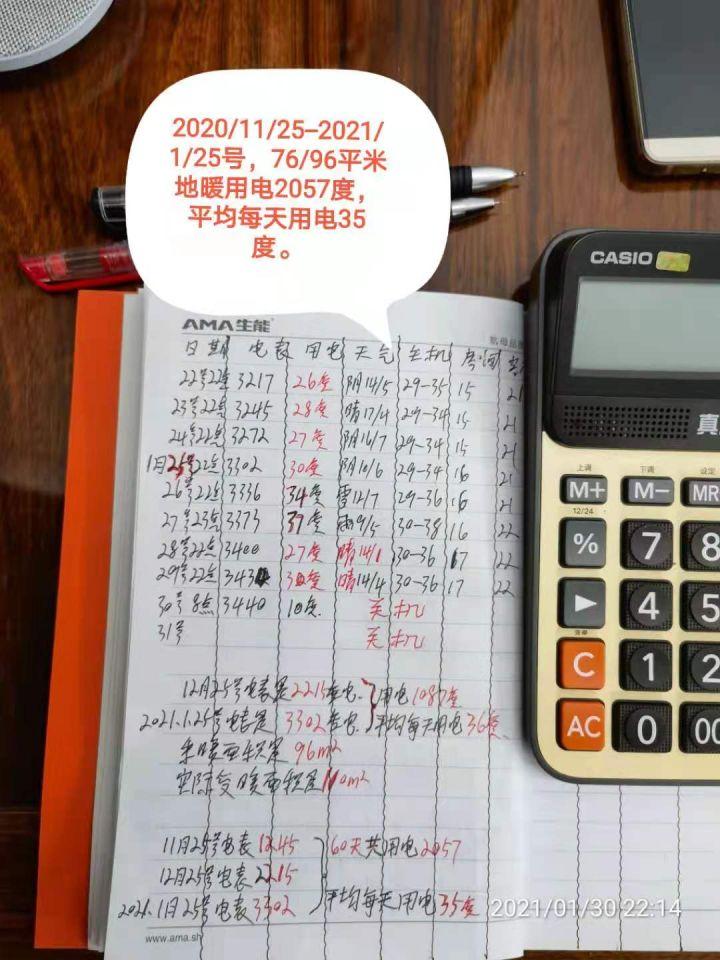 2020/11/25-2021/
1/25号，76/96平米
地暖用电2057度，
平均每天用电35
度。
AMA生能
日期 电表 用电 天气 主机 房间
22号22点 3217 26度 阴14/5 29-35 15 21
23号22点 3245 28度 晴17/4 29-34 15 21
24号22点 3272 27度 阴16/7 29-34 15 21
1月25号22点 3302 30度 阴10/6 29-34 16 21
26号22点 3336 34度 雪12/7 29-36 16 21
27号23点 3373 37度 雨9/5 30-38 16 22
28号22点 3400 27度 晴14/1 30-36 17 22
29号22点 343 度 晴14/4 30-36 17 22
30号8点 3440 10度. 关机
31号 关机
12月25号电表是2215度电. 用电1087度
2021.1.25号电表是3302度电. 平均每天用电36度.
采暖面积是96m²
实际受暖面积是110m²
11月25号电表1245 60天共用电2057
12月25号电表2215
2021.1月25号电表3302 平均每天用电35度
www.ama.sh
CASIO
真
上调 下调 设定
M+ M- MR
12/24
% 7 8
▶ 4 5
C 1 2
AC 0 00
2021/01/30 22:14